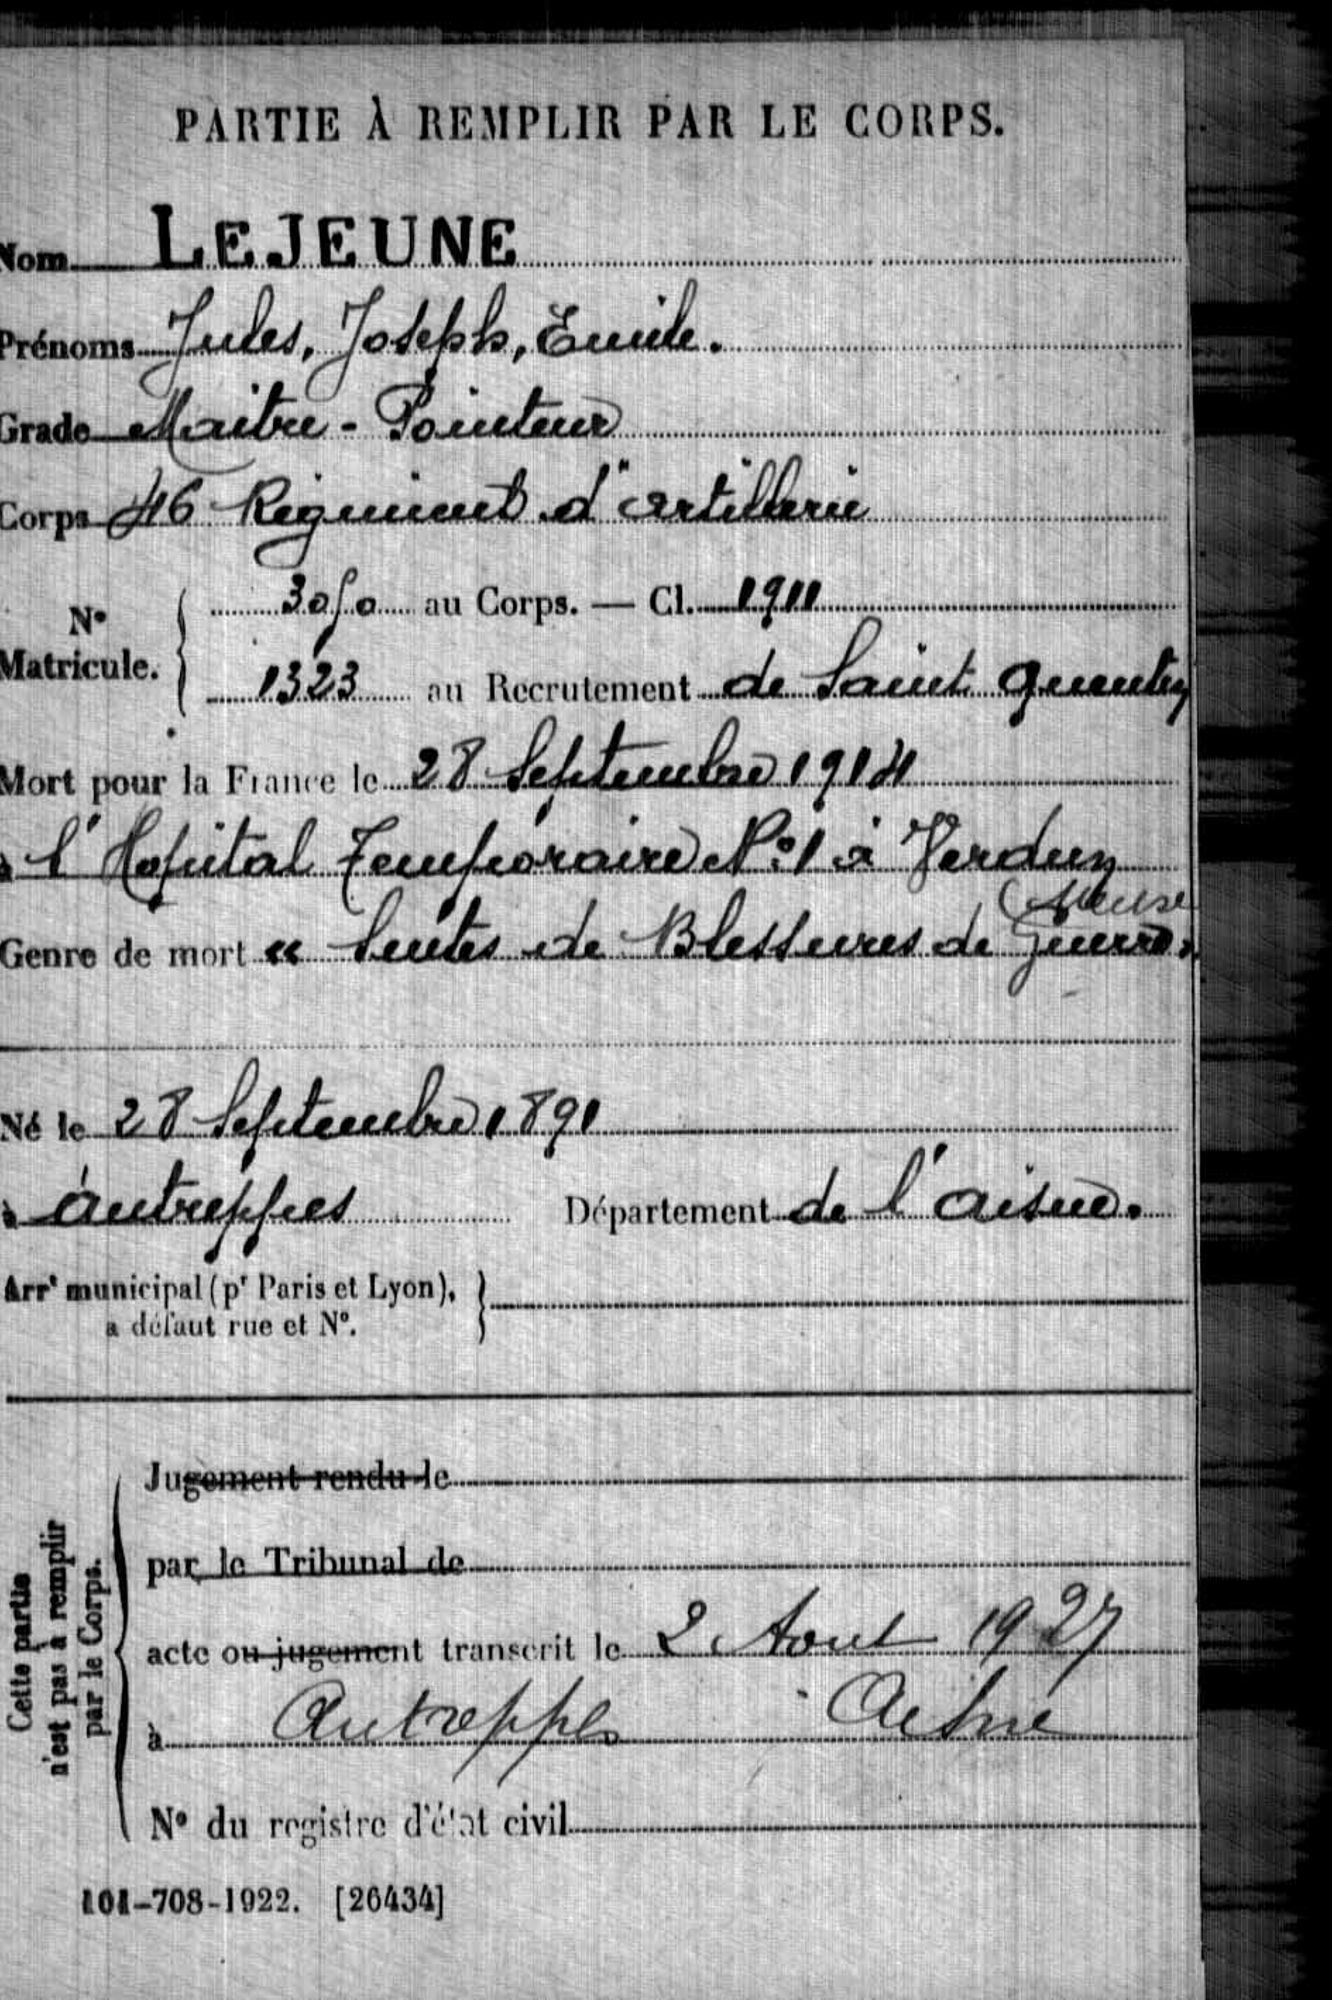 PARTIE À REMPLIR PAR LE CORPS.
Nom LEJEUNE
Prénoms Jules, Joseph, Emile.
Grade Maitre - Pointeur
Corps 46 Régiment d'artillerie
N° Matricule. 3050 au Corps. — Cl. 1911
1323 au Recrutement de Saint Quentin
Mort pour la France le 28 Septembre 1914
à l'Hopital Temporaire N°1 à Verdun
(Meuse
Genre de mort « Suites de Blessures de Guerre »
Né le 28 Septembre 1891
à autreppes Département de l'aisne.
Arrt municipal (pr Paris et Lyon),
à défaut rue et N°.
Jugement rendu le
par le Tribunal de
acte ou jugement transcrit le 2 Aout 1927
à Autreppes Aisne
N° du registre d'état civil
Cette partie
n'est pas à remplir
par le Corps.
101-708-1922. [26434]